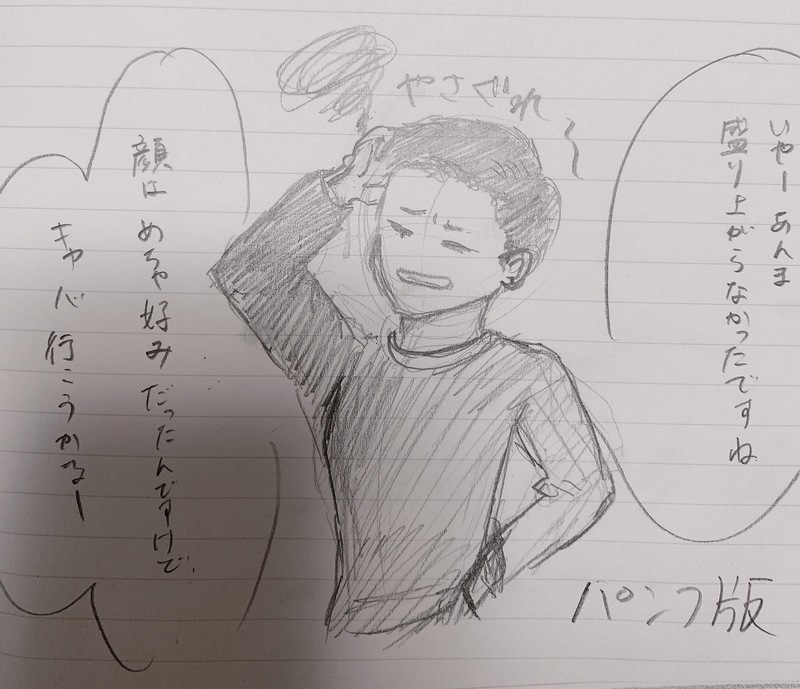 いやーあんま
盛り上がらなかったですね
やさぐれ
顔は めちゃ好みだったんですけど
キャバ行こうかなー
パンフ版